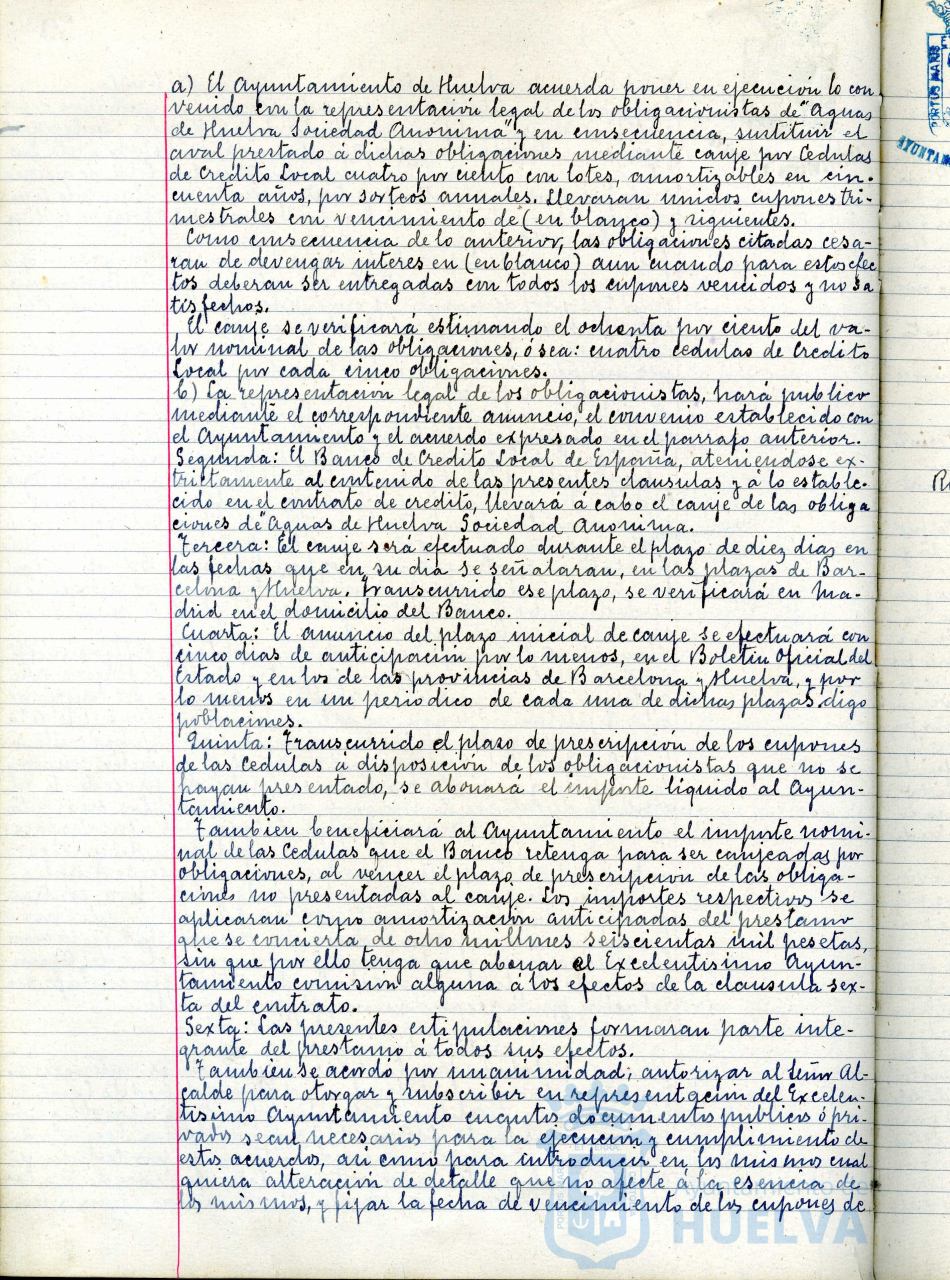 a) El Ayuntamiento de Huelva acuerda poner en ejecución lo con
venido con la representación legal de los obligacionistas de "Aguas
de Huelva Sociedad Anonima" y en consecuencia, sustituir el
aval prestado á dichas obligaciones mediante canje por Cedulas
de Credito Local cuatro por ciento con lotes, amortizables en cin-
cuenta años, por sorteos anuales. Llevaran unidos cupones tri-
mestrales con vencimiento de (en blanco) y siguientes.
Como consecuencia de lo anterior, las obligaciones citadas cesa-
ran de devengar interes en (en blanco) aun cuando para estos efec
tos deberan ser entregadas con todos los cupones vencidos y no sa
tisfechos.
El canje se verificará estimando el ochenta por ciento del va-
lor nominal de las obligaciones, ó sea: cuatro cedulas de Credito
Local por cada cinco obligaciones.
b) La representación legal de los obligacionistas, hará publico
mediante el correspondiente anuncio, el convenio establecido con
el Ayuntamiento y el acuerdo expresado en el parrafo anterior.
Segunda: El Banco de Credito Local de España, ateniendose ex-
trictamente al contenido de las presentes clausulas y á lo estable-
cido en el contrato de credito, llevará á cabo el canje de las obliga
ciones de "Aguas de Huelva Sociedad Anonima.
Tercera: El canje será efectuado durante el plazo de diez dias en
las fechas que en su dia se señalaran, en las plazas de Bar-
celona y Huelva. Transcurrido ese plazo, se verificará en Ma-
drid en el domicilio del Banco.
Cuarta: El anuncio del plazo inicial de canje se efectuará con
cinco dias de anticipación por lo menos, en el Boletin Oficial del
Estado y en los de las provincias de Barcelona y Huelva, y por
lo menos en un periodico de cada una de dichas plazas digo
poblaciones.
Quinta: Transcurrido el plazo de prescripción de los cupones
de las Cedulas á disposición de los obligacionistas que no se
hayan presentado, se abonará el importe líquido al Ayun-
tamiento.
Tambien beneficiará al Ayuntamiento el importe nomi-
nal de las Cedulas que el Banco retenga para ser canjeadas por
obligaciones, al vencer el plazo de prescripcion de las obliga-
ciones no presentadas al canje. Los importes respectivos se
aplicaran como amortización anticipadas del prestamo
que se concierta de ocho millones seiscientas mil pesetas,
sin que por ello tenga que abonar el Excelentisimo Ayun-
tamiento comisión alguna á los efectos de la clausula sex-
ta del contrato.
Sexta: Las presentes estipulaciones formaran parte inte-
grante del prestamo á todos sus efectos.
Tambien se acordó por unanimidad; autorizar al Señor Al-
calde para otorgar y subscribir en representación del Excelen-
tisimo Ayuntamiento cuantos documentos publicos ó pri-
vados sean necesarios para la ejecución y cumplimiento de
estos acuerdos, asi como para introducir en los mismos cual
quiera alteración de detalle que no afecte á la esencia de
los mismos, y fijar la fecha de vencimiento de los cupones de
HUELVA